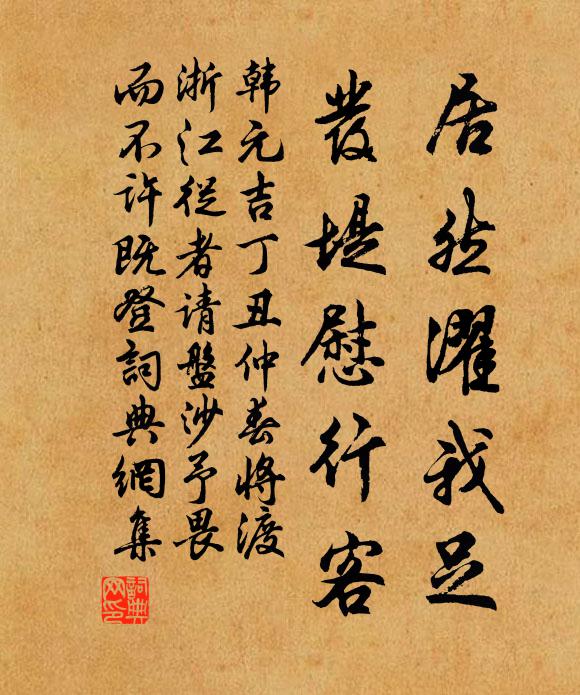 居然濯我足
发堤慰行客
韩元吉丁丑仲春将渡
浙江从者请盘沙予畏
而不许既登词典网集
詞典
网印